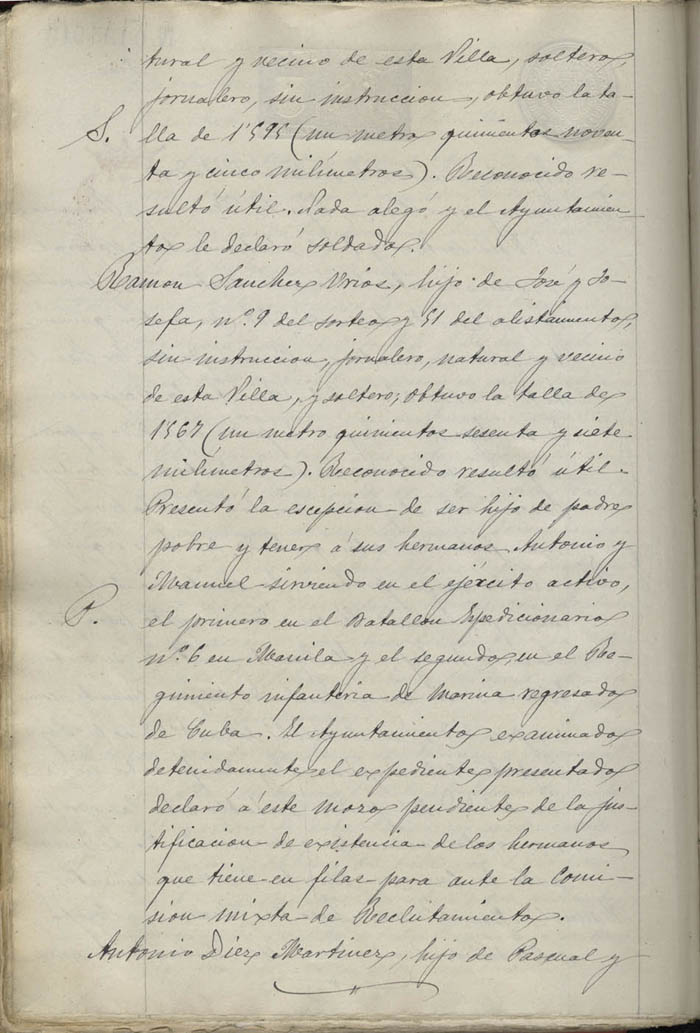 tural y vecino de esta Villa, soltero,
jornalero, sin instruccion, obtuvo la ta-
S. lla de 1'595 (un metro quinientos noven-
ta y cinco milímetros). Reconocido re-
sultó útil. Nada alegó y el Ayuntamien-
to le declaró soldado.
Ramon Sanchez Urios, hijo de José y Jo-
sefa, nº 9 del sorteo y 51 del alistamiento,
sin instruccion, jornalero, natural y vecino
de esta Villa, y soltero; obtuvo la talla de
1567 (un metro quinientos sesenta y siete
milímetros). Reconocido resultó útil.
Presentó la escepcion de ser hijo de padre
pobre y tener á sus hermanos Antonio y
Manuel sirviendo en el ejército activo,
P. el primero en el Batallon Expedicionario
nº 6 en Manila y el segundo en el Re-
gimiento infanteria de Marina regresado
de Cuba. El Ayuntamiento examinado
detenidamente el expediente presentado
declaró á este mozo pendiente de la jus-
tificacion de existencia de los hermanos
que tiene en filas para ante la Comi-
sion mixta de Reclutamiento.
Antonio Diez Martinez, hijo de Pascual y